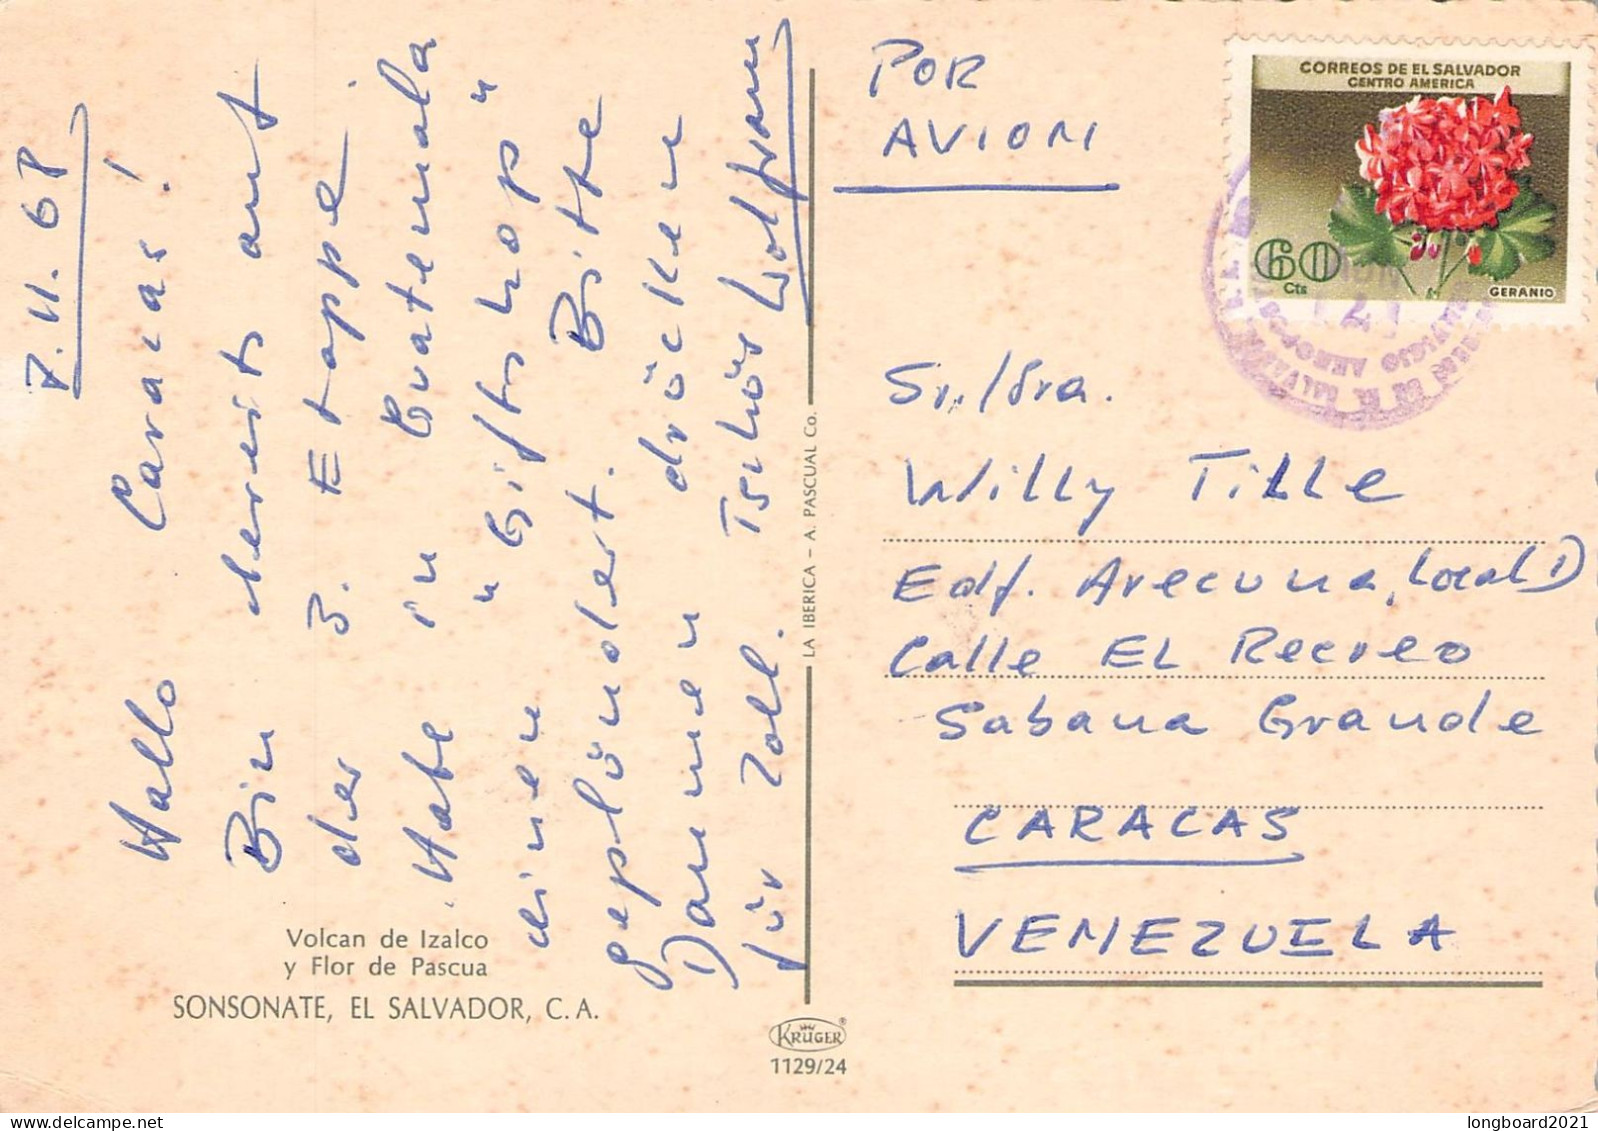 7.11.68
Hallo Caracas!
Bin bereits auf
der 3. Etappe
Habe in Guatemala
einen "Giftshop"
geplündert. Bitte
Daumen drücken
für Zoll. Tschüs Wolfram
Volcan de Izalco
y Flor de Pascua
SONSONATE, EL SALVADOR, C.A.
LA IBERICA – A. PASCUAL Co.
KRÜGER®
1129/24
POR
AVION
CORREOS DE EL SALVADOR
CENTRO AMERICA
60
Cts
GERANIO
Sr./Sra.
Willy Tille
Edf. Arecuna, Local D
Calle El Recreo
Sabana Grande
CARACAS
VENEZUELA
longboard2021